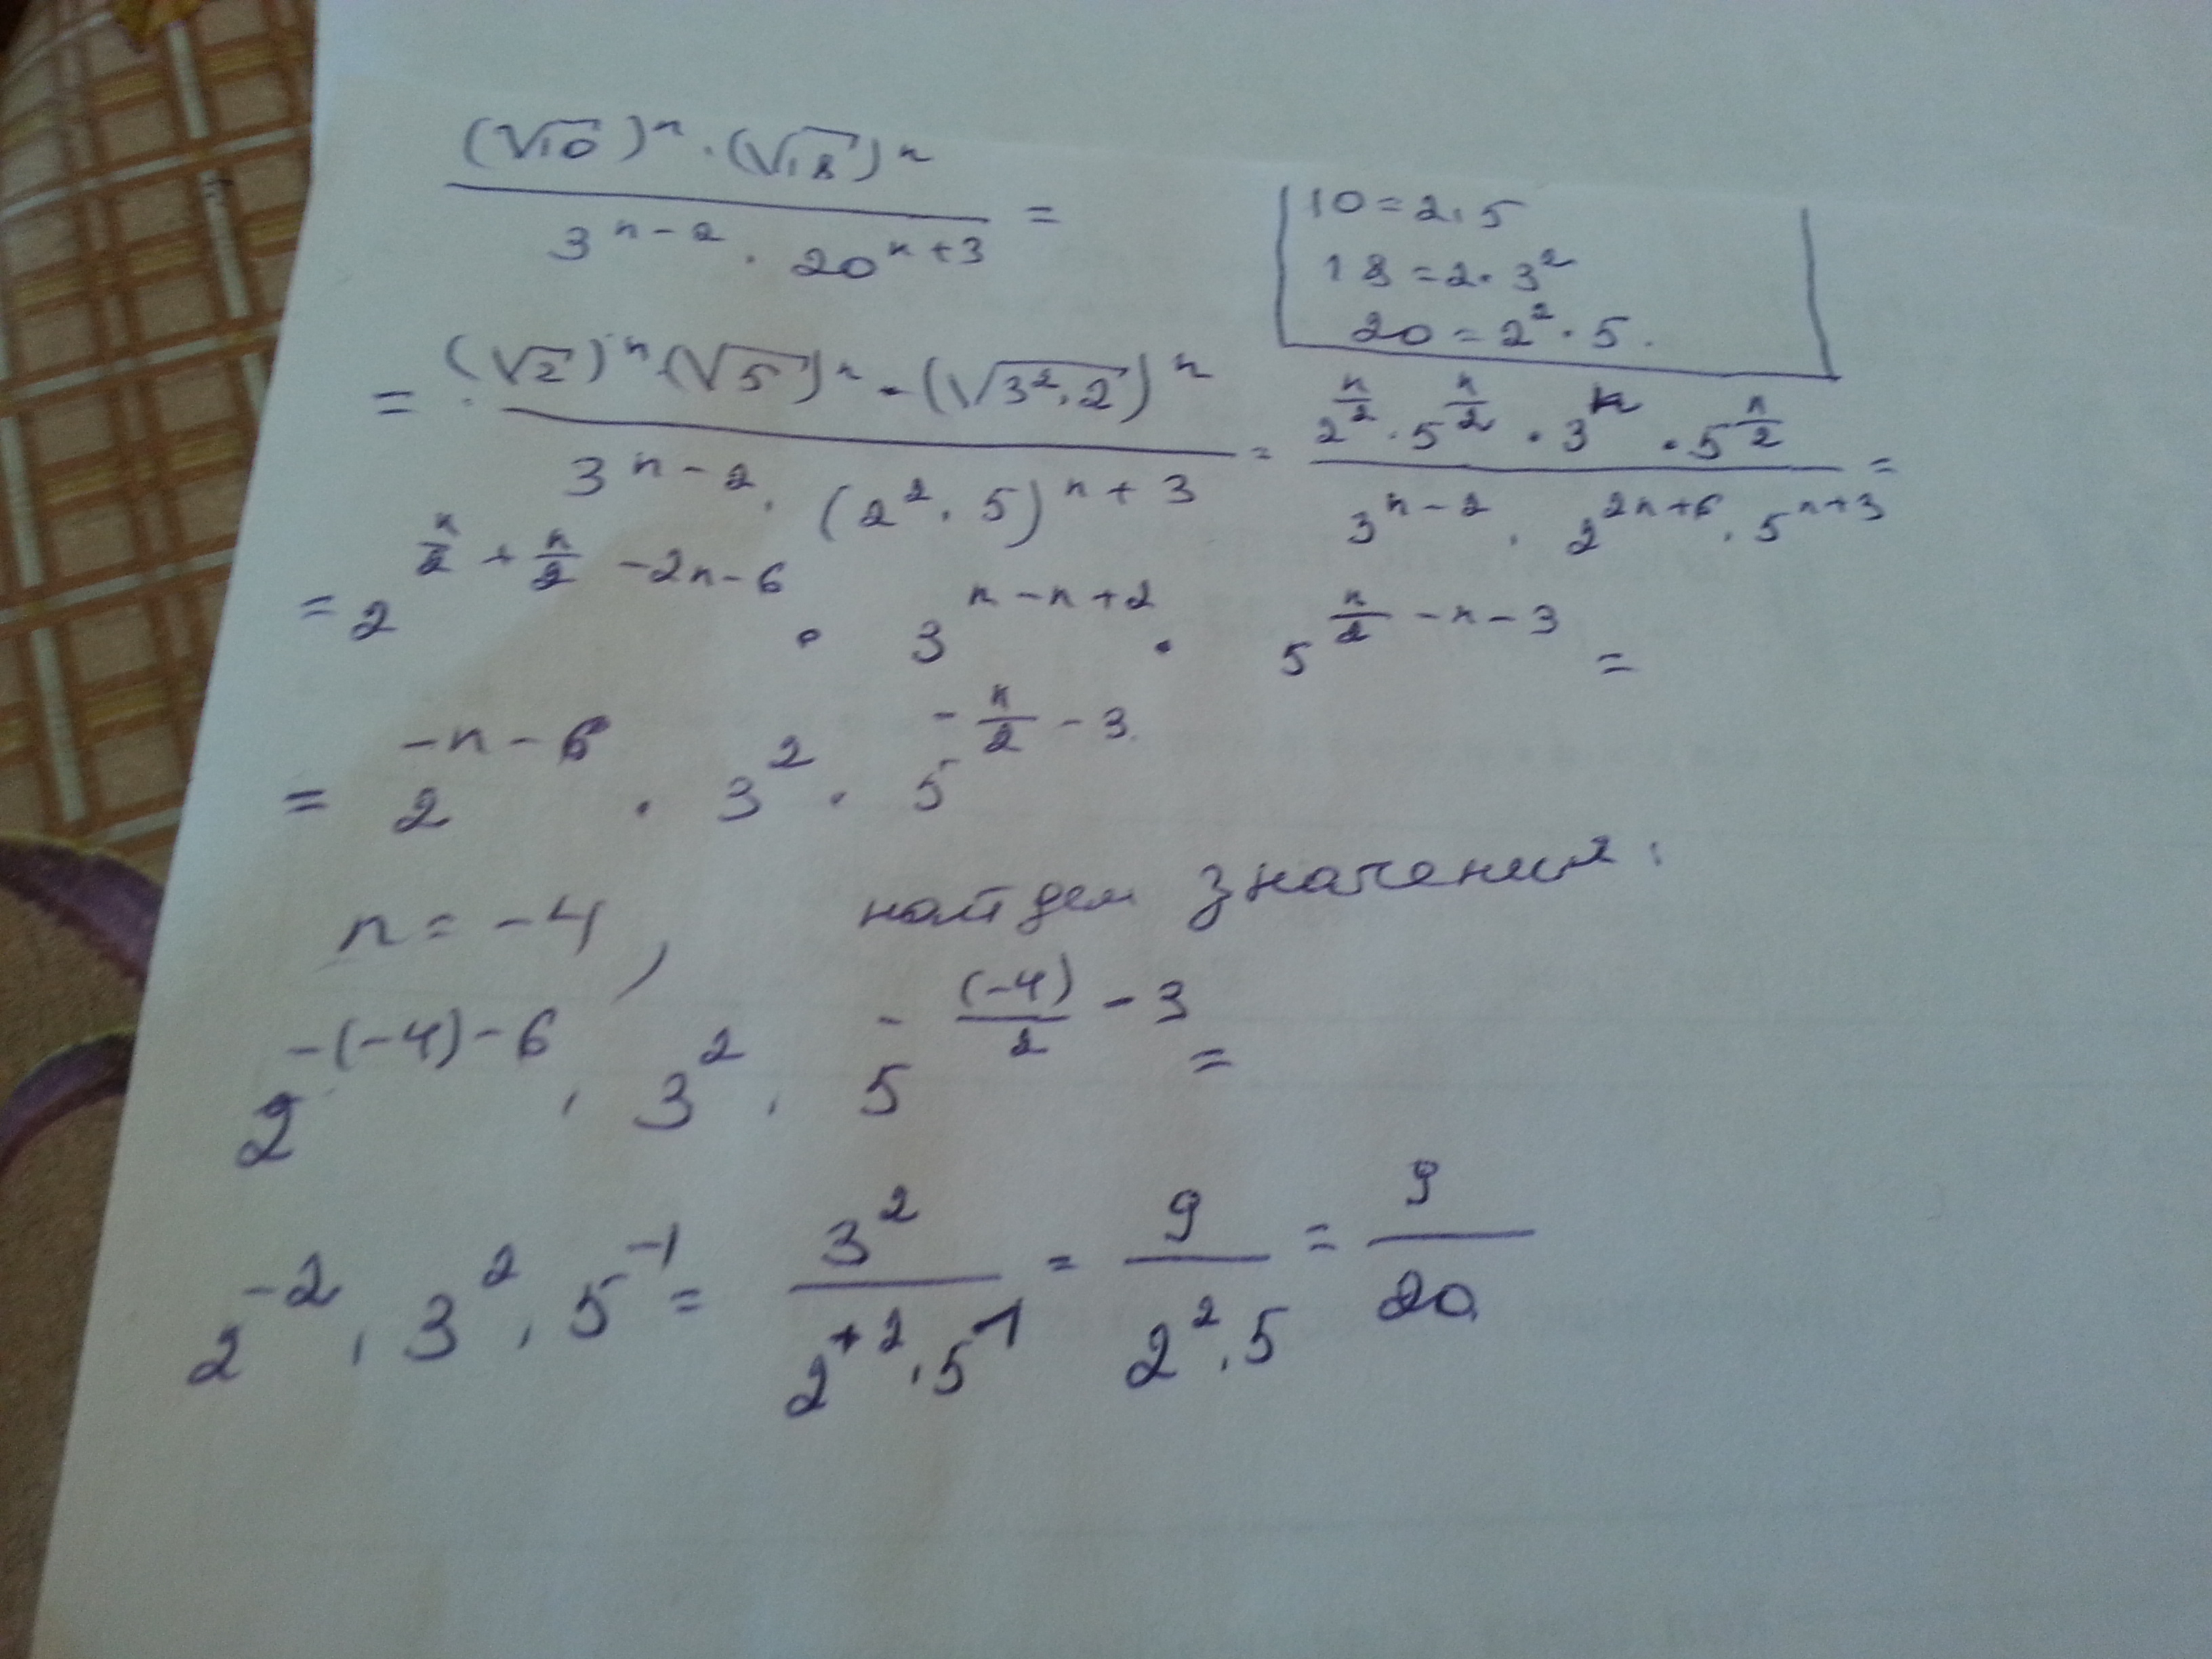 (√10)ⁿ · (√18)ⁿ / 3ⁿ⁻² · 20ⁿ⁺³ =
10 = 2 · 5
18 = 2 · 3²
20 = 2² · 5.
= (√2)ⁿ · (√5)ⁿ · (√3² · 2)ⁿ / 3ⁿ⁻² · (2² · 5)ⁿ⁺³ = 2^(n/2) · 5^(n/2) · 3ⁿ · 5^(n/2) / 3ⁿ⁻² · 2²ⁿ⁺⁶ · 5ⁿ⁺³ =
= 2^(n/2 + n/2 - 2n - 6) · 3^(n - n + 2) · 5^(n/2 - n - 3) =
= 2^(-n - 6) · 3² · 5^(-n/2 - 3)
n = -4, найдем значение:
2^(-(-4) - 6) · 3² · 5^(-(-4)/2 - 3) =
2⁻² · 3² · 5⁻¹ = 3² / 2⁺² · 5¹ = 9 / 2² · 5 = 9 / 20